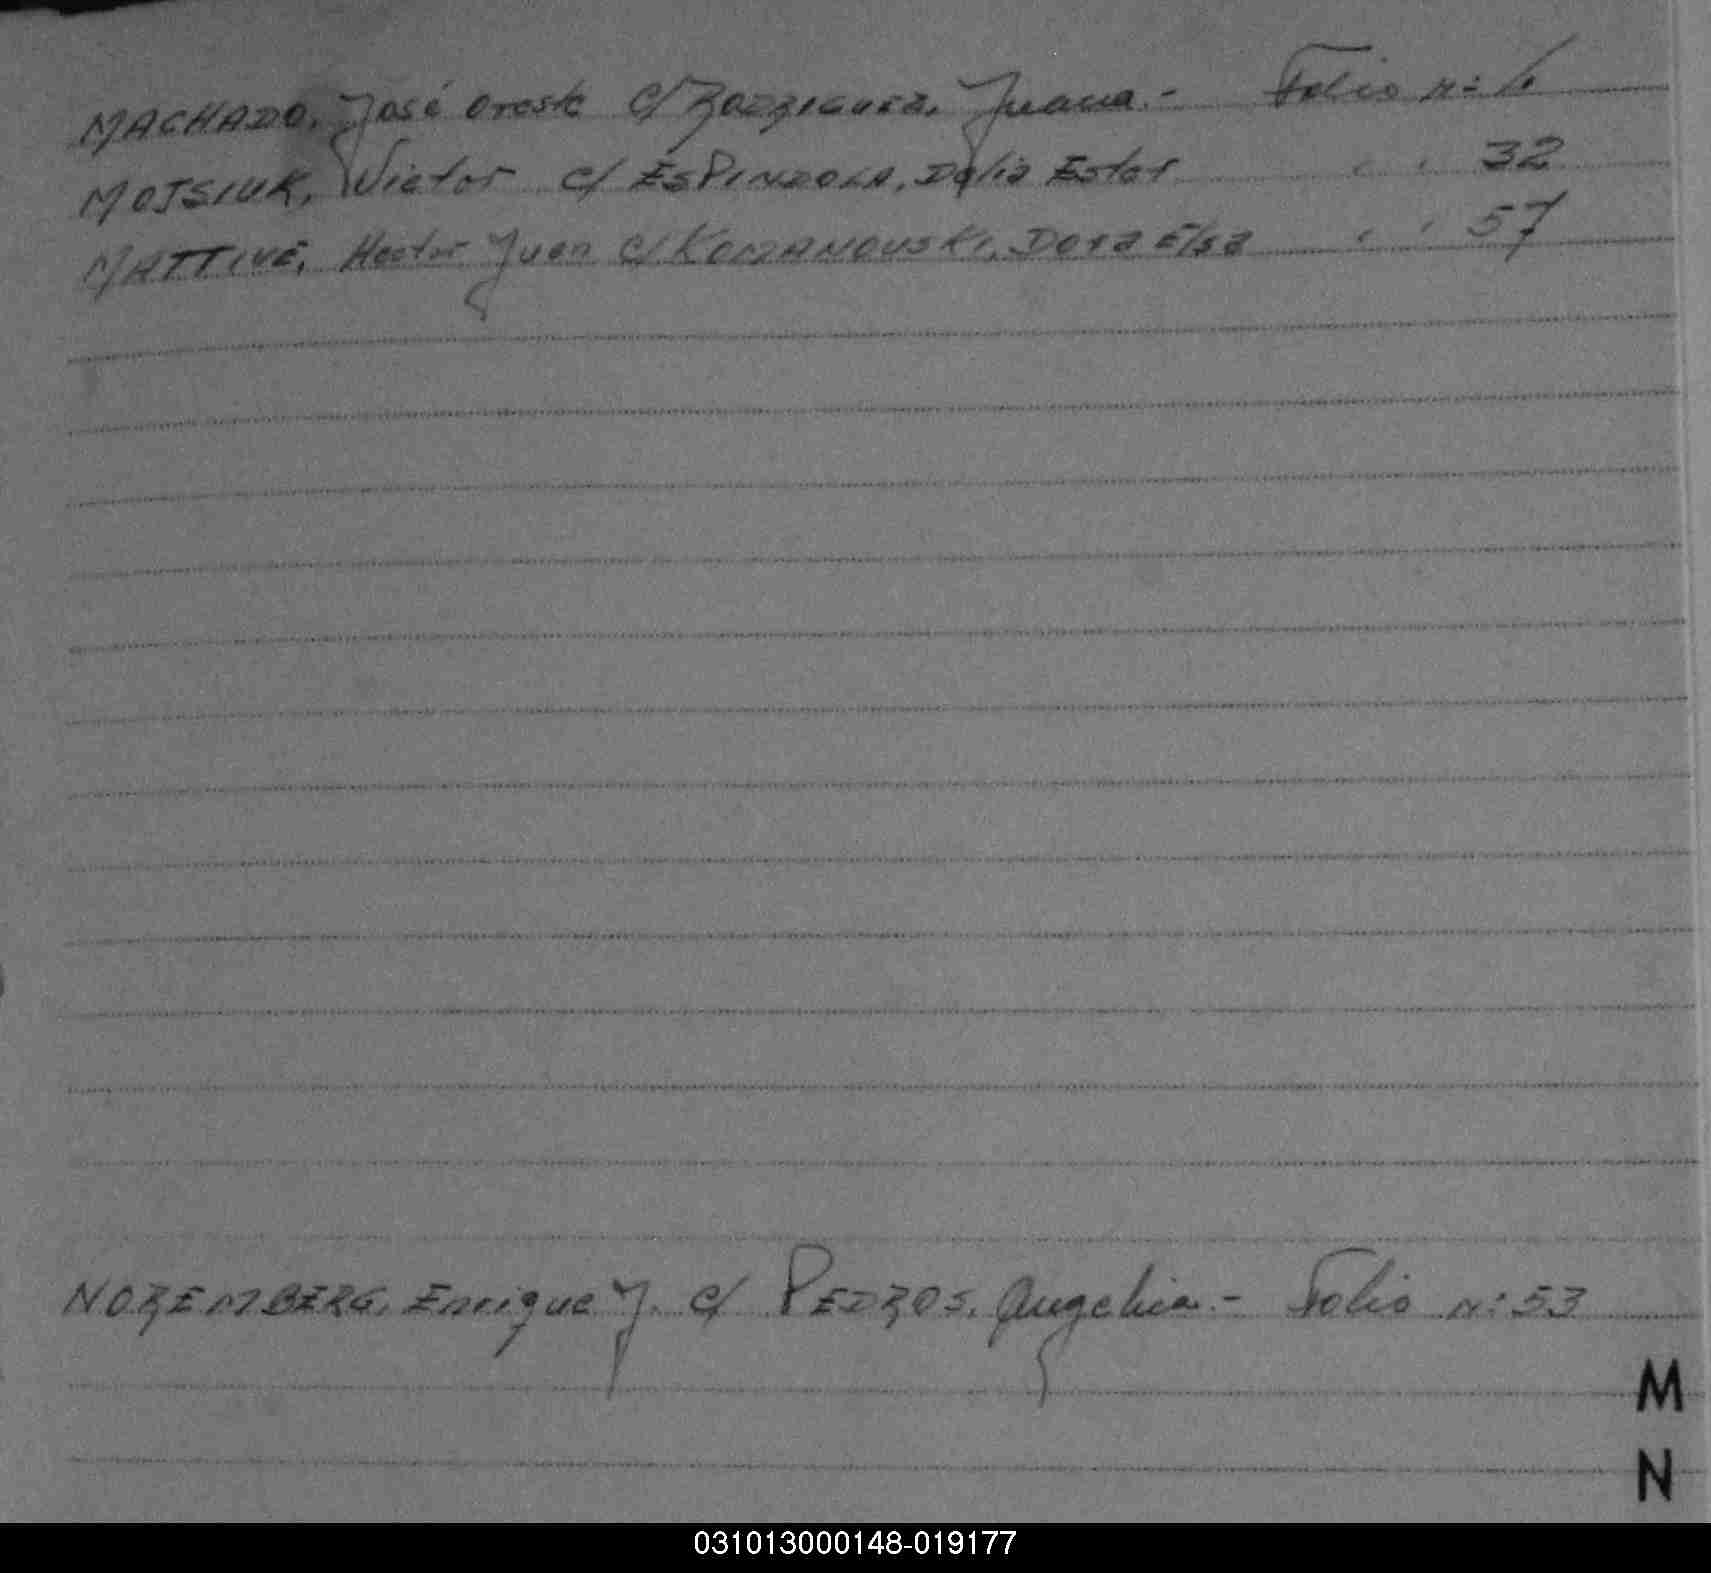 MACHADO, José Oreste c/ RODRIGUEZ, Juana.- Folio n: 10
MOJSIUK, Victor c/ ESPINDOLA, Delia Ester " " 32
MATTIVE, Hector Juan c/ ROMANOUSKI, Dora Elsa " " 57
NOREMBERG, Enrique J. c/ PEDROS, Angelica.- Folio n: 53
M
N
031013000148-019177